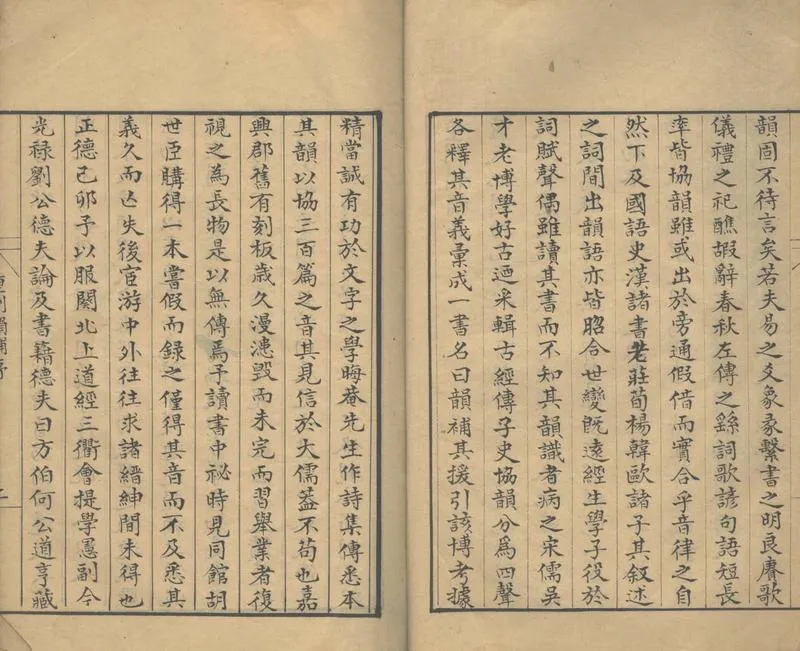 韻固不待言矣若夫易之爻象彖繫書之明良賡歌
儀禮之祀醮嘏辭春秋左傳之繇詞歌諺句語短長
率皆協韻雖或出於旁通假借而實合乎音律之自
然下及國語史漢諸書老莊荀楊韓歐諸子其叙述
之詞間出韻語亦皆昭合世變旣遠經生學子役於
詞賦聲偶雖讀其書而不知其韻識者病之宋儒吳
才老博學好古廼采輯古經傳子史協韻分爲四聲
各釋其音義彙成一書名曰韻補其援引該博考據
精當誠有功於文字之學晦菴先生作詩集傳悉本
其韻以協三百篇之音其見信於大儒葢不苟也嘉
興郡舊有刻板歲久漫漶毀而未完而習舉業者復
視之為長物是以無傳焉予讀書中祕時見同館胡
世臣購得一本嘗假而録之僅得其音而不及悉其
義久而亡失後宦游中外往往求諸縉紳間未得也
正德己卯予以服闋北上道經三衢會提學憲副今
光禄劉公德夫論及書籍德夫曰方伯何公道亨藏